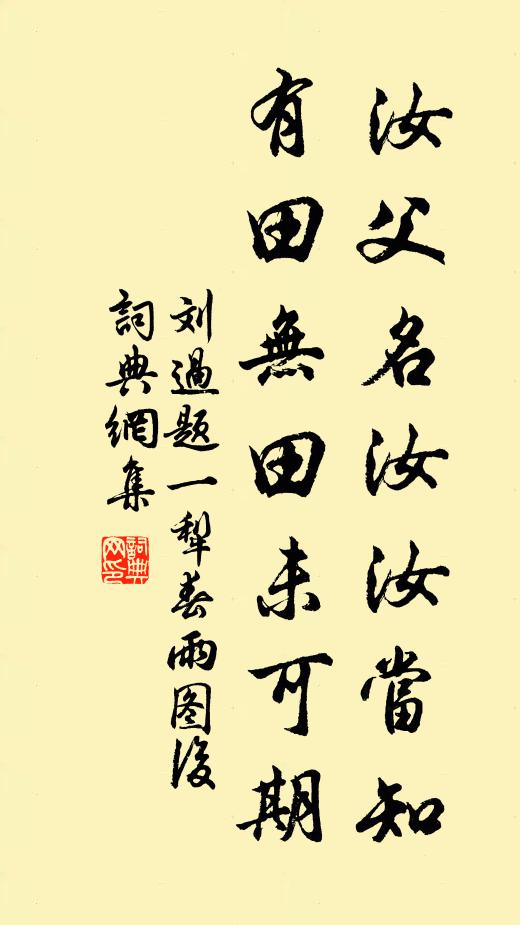 汝父名汝汝當知
有田無田未可期
刘過题一犁春雨图後
詞典網集
詞典网印